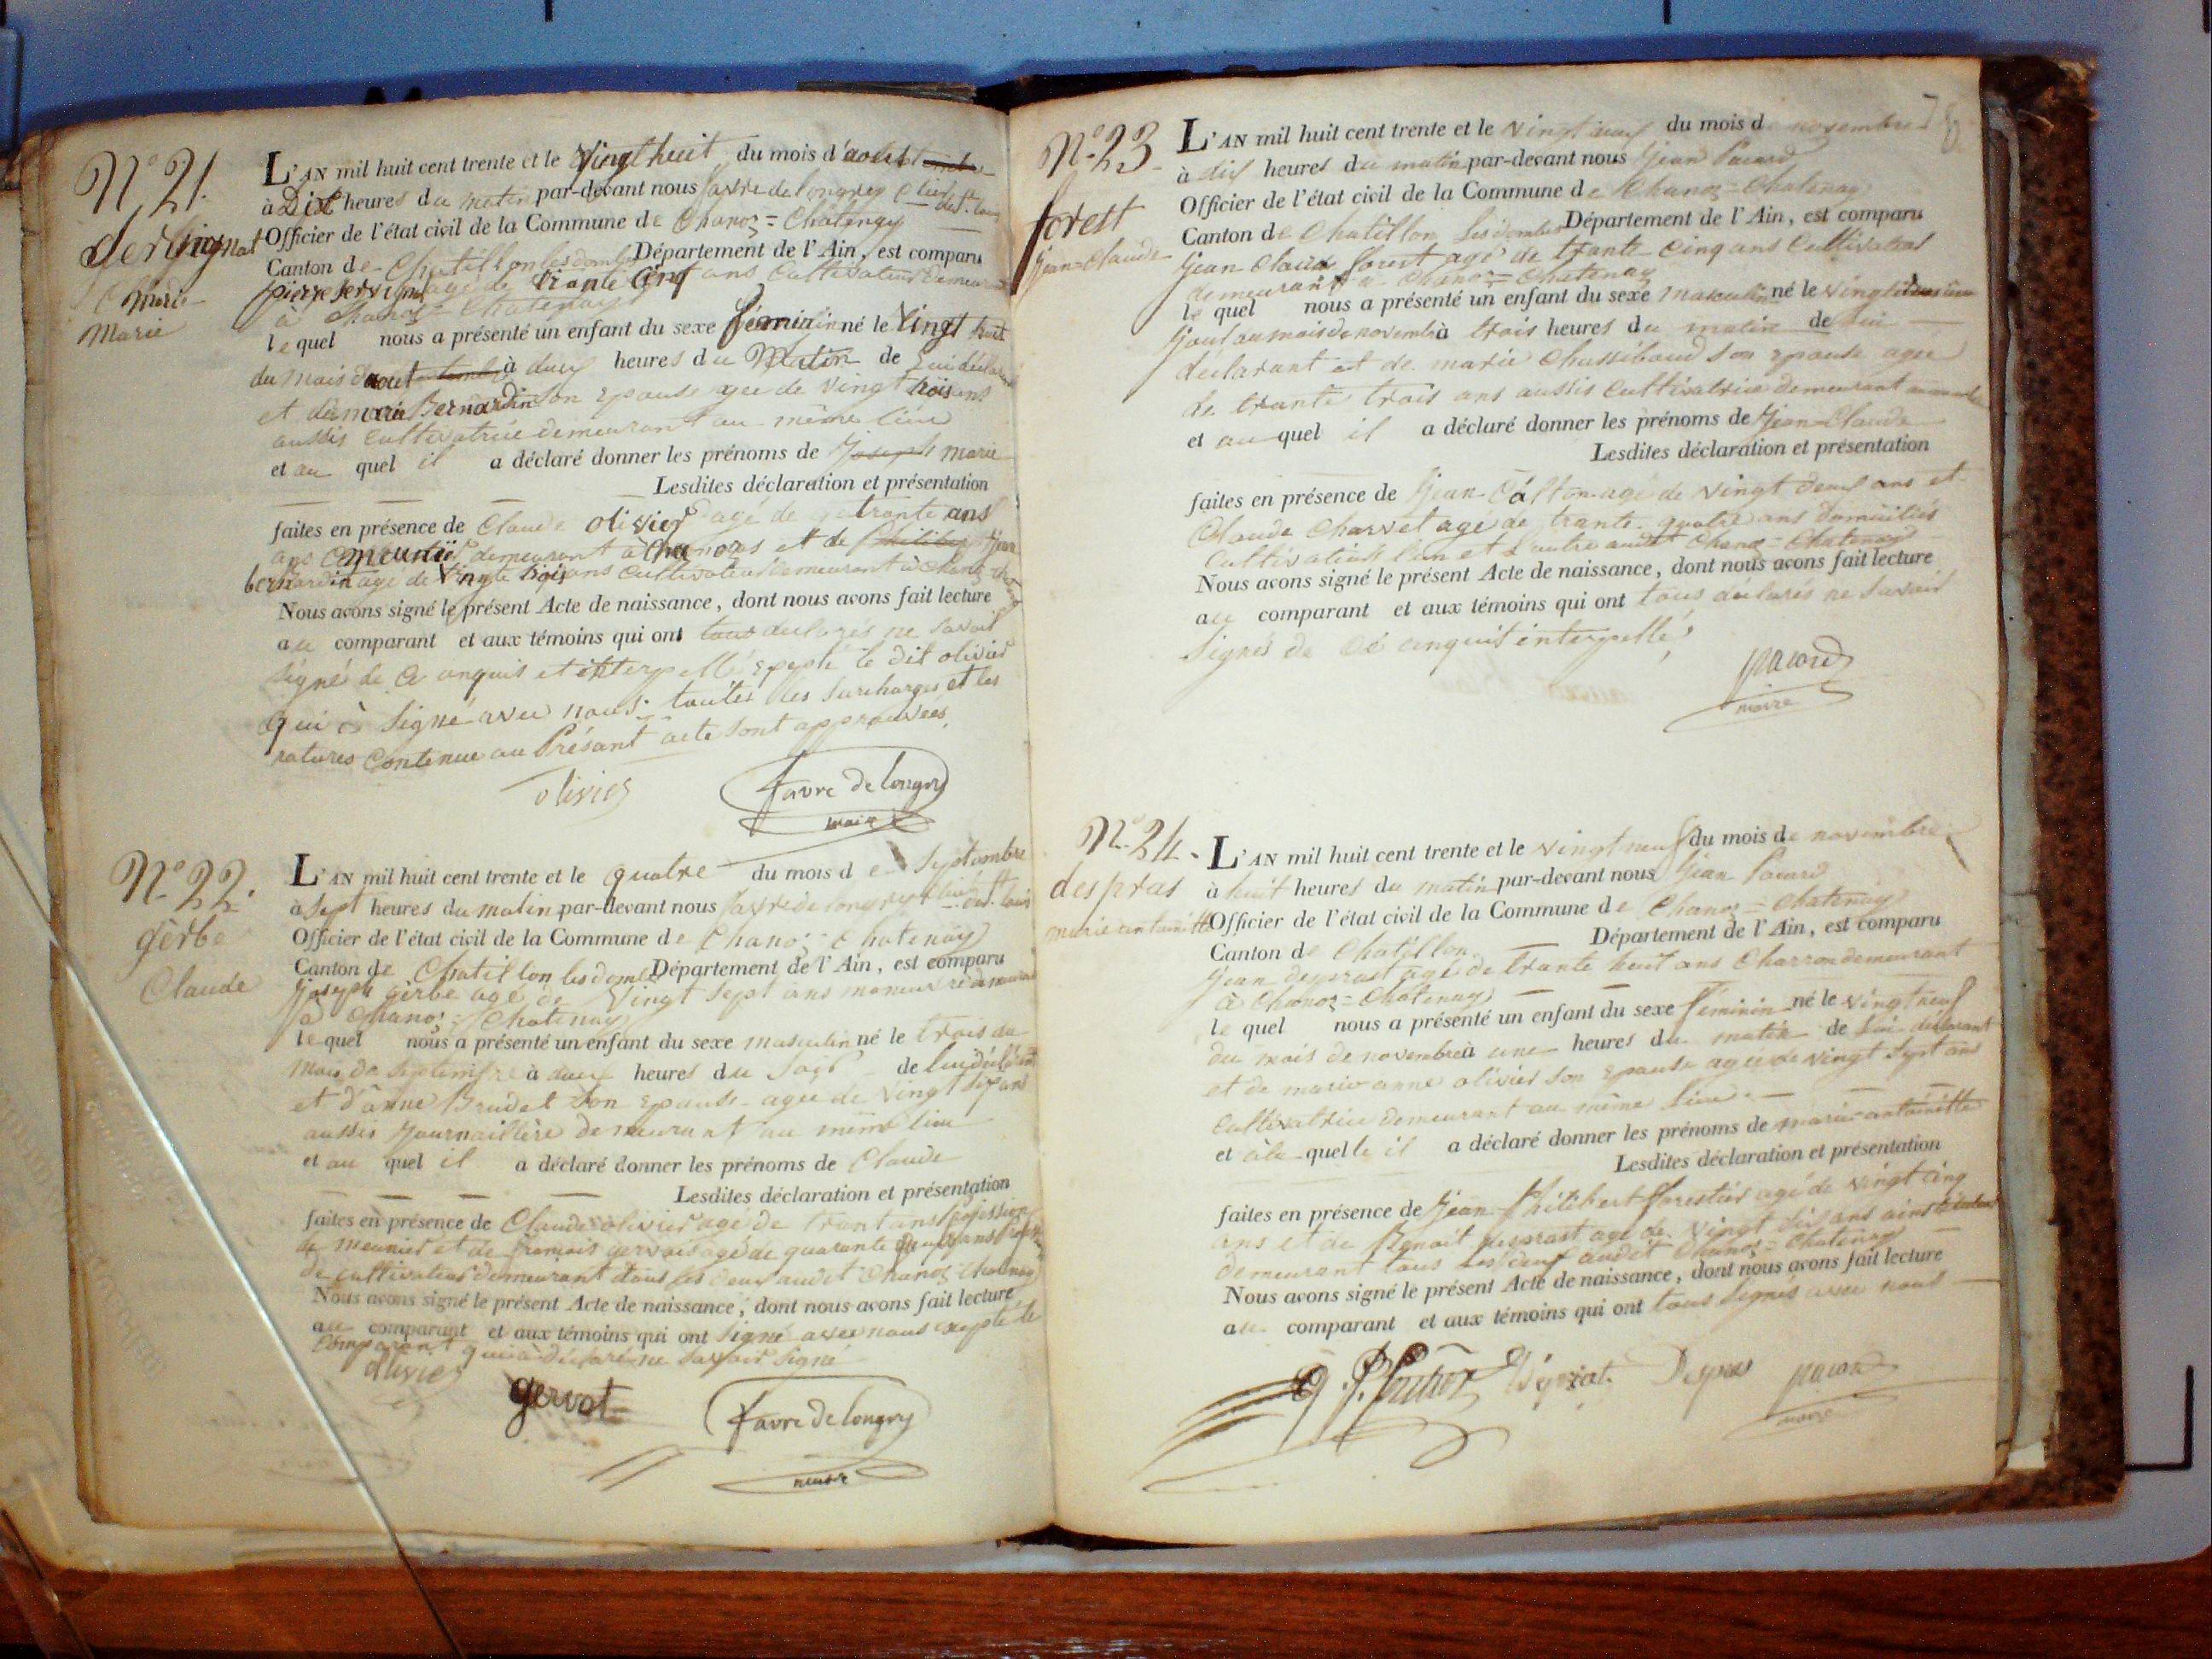 N.° 21.
Servignat
Marie
Marie
L'AN mil huit cent trente et le Vingt huit du mois d'aoust
à Dix heures du matin par-devant nous favre de longry
Officier de l'état civil de la Commune de Chanoz = Châtenay
Canton de Chatillon les dombes Département de l'Ain, est comparu
pierre servignat agé de trante Cinq ans Cultivateur demeurant
à Chanoz = Chatenay
le quel nous a présenté un enfant du sexe féminin né le Vingt huit
du mois d'aout à deux heures du Matin de lui déclarant
et de marie Bernardin son epouse agee de vingt trois ans
aussis cultivatrice demeurant au même lieu
et au quel il a déclaré donner les prénoms de Joseph marie
Lesdites déclaration et présentation
faites en présence de Claude olivier agé de trante ans
ans meunier demeurant à Chanoz et de jean
bernardin agé de Vingte trois ans cultivateur demeurant à Chanoz
Nous avons signé le présent Acte de naissance, dont nous avons fait lecture
au comparant et aux témoins qui ont tous declarés ne savoir
signé de ce anquis et interpellé excepté le dit olivier
qui à signé avec nous. toutes les surcharges et les
ratures Contenue au Présant acte sont approuvées.
olivier
favre De longry
maire
N.° 22.
gèrbe
Claude
L'AN mil huit cent trente et le quatre du mois de Septembre
à sept heures du matin par-devant nous favre de longry
Officier de l'état civil de la Commune de Chanoz = Chatenay
Canton de Chatillon les dombes Département de l'Ain, est comparu
joseph gèrbe agé de Vingt sept ans manœuvre demeurant
à Chanoz = Chatenay
le quel nous a présenté un enfant du sexe masculin né le trois du
mois de Septembre à deux heures du soir de lui déclarant
et d'anne Brudet son epouse agee de vingt sept ans
aussis journaillère demeurant au même lieu
et au quel il a déclaré donner les prénoms de Claude
Lesdites déclaration et présentation
faites en présence de Claude olivier agé de trant ans profession
de meunier et de francois gervais agé de quarante deux ans
de cultivateur demeurant tous les deux audit Chanoz Chatenay
Nous avons signé le présent Acte de naissance, dont nous avons fait lecture
au comparant et aux témoins qui ont signé avec nous excepté le
Comparant qui à déclaré ne savoir signé
olivier
gervot
favre De longry
maire
78
N.° 23
forest
jean-claude
L'AN mil huit cent trente et le vingt du mois de novembre
à dix heures du matin par-devant nous jean Pacard
Officier de l'état civil de la Commune de Chanoz = Chatenay
Canton de Chatillon les dombes Département de l'Ain, est comparu
jean Claude forest agé de trante cinq ans Cultivateur
demeurant à Chanoz = Chatenay
le quel nous a présenté un enfant du sexe masculin né le vingt
jour du mois de novembre à trois heures du matin de lui
déclarant et de marie Chassibaud son epouse agee
de trante trois ans aussis cultivatrice demeurant
et au quel il a déclaré donner les prénoms de Jean-Claude
Lesdites déclaration et présentation
faites en présence de jean agé de vingt deux ans et
Claude Charvet agé de trante quatre ans domiciliés
cultivateur l'un et l'autre audit Chanoz = Chatenay
Nous avons signé le présent Acte de naissance, dont nous avons fait lecture
au comparant et aux témoins qui ont tous déclarés ne savoir
signés de ce anquit interpellé,
pacard
maire
N.° 24.
despras
marie antoinette
L'AN mil huit cent trente et le vingt neuf du mois de novembre
à huit heures du matin par-devant nous Jean Pacard
Officier de l'état civil de la Commune de Chanoz = Chatenay
Canton de Chatillon Département de l'Ain, est comparu
jean desprast agé de trante huit ans Charron demeurant
à Chanoz = Chatenay
le quel nous a présenté un enfant du sexe féminin né le vingt neuf
du mois de novembre à une heures du matin de lui déclarant
et de marie anne olivier son epouse agee de vingt sept ans
cultivatrice demeurant au même lieu
et à la quelle il a déclaré donner les prénoms de marie-antoinette
Lesdites déclaration et présentation
faites en présence de Jean Philibert forestier agé de vingt cinq
ans et de Benoit desprast agé de vingt dix ans
demeurant tous les deux audit Chanoz = Chatenay
Nous avons signé le présent Acte de naissance, dont nous avons fait lecture
au comparant et aux témoins qui ont tous signés avec nous
Despras
pacard
maire